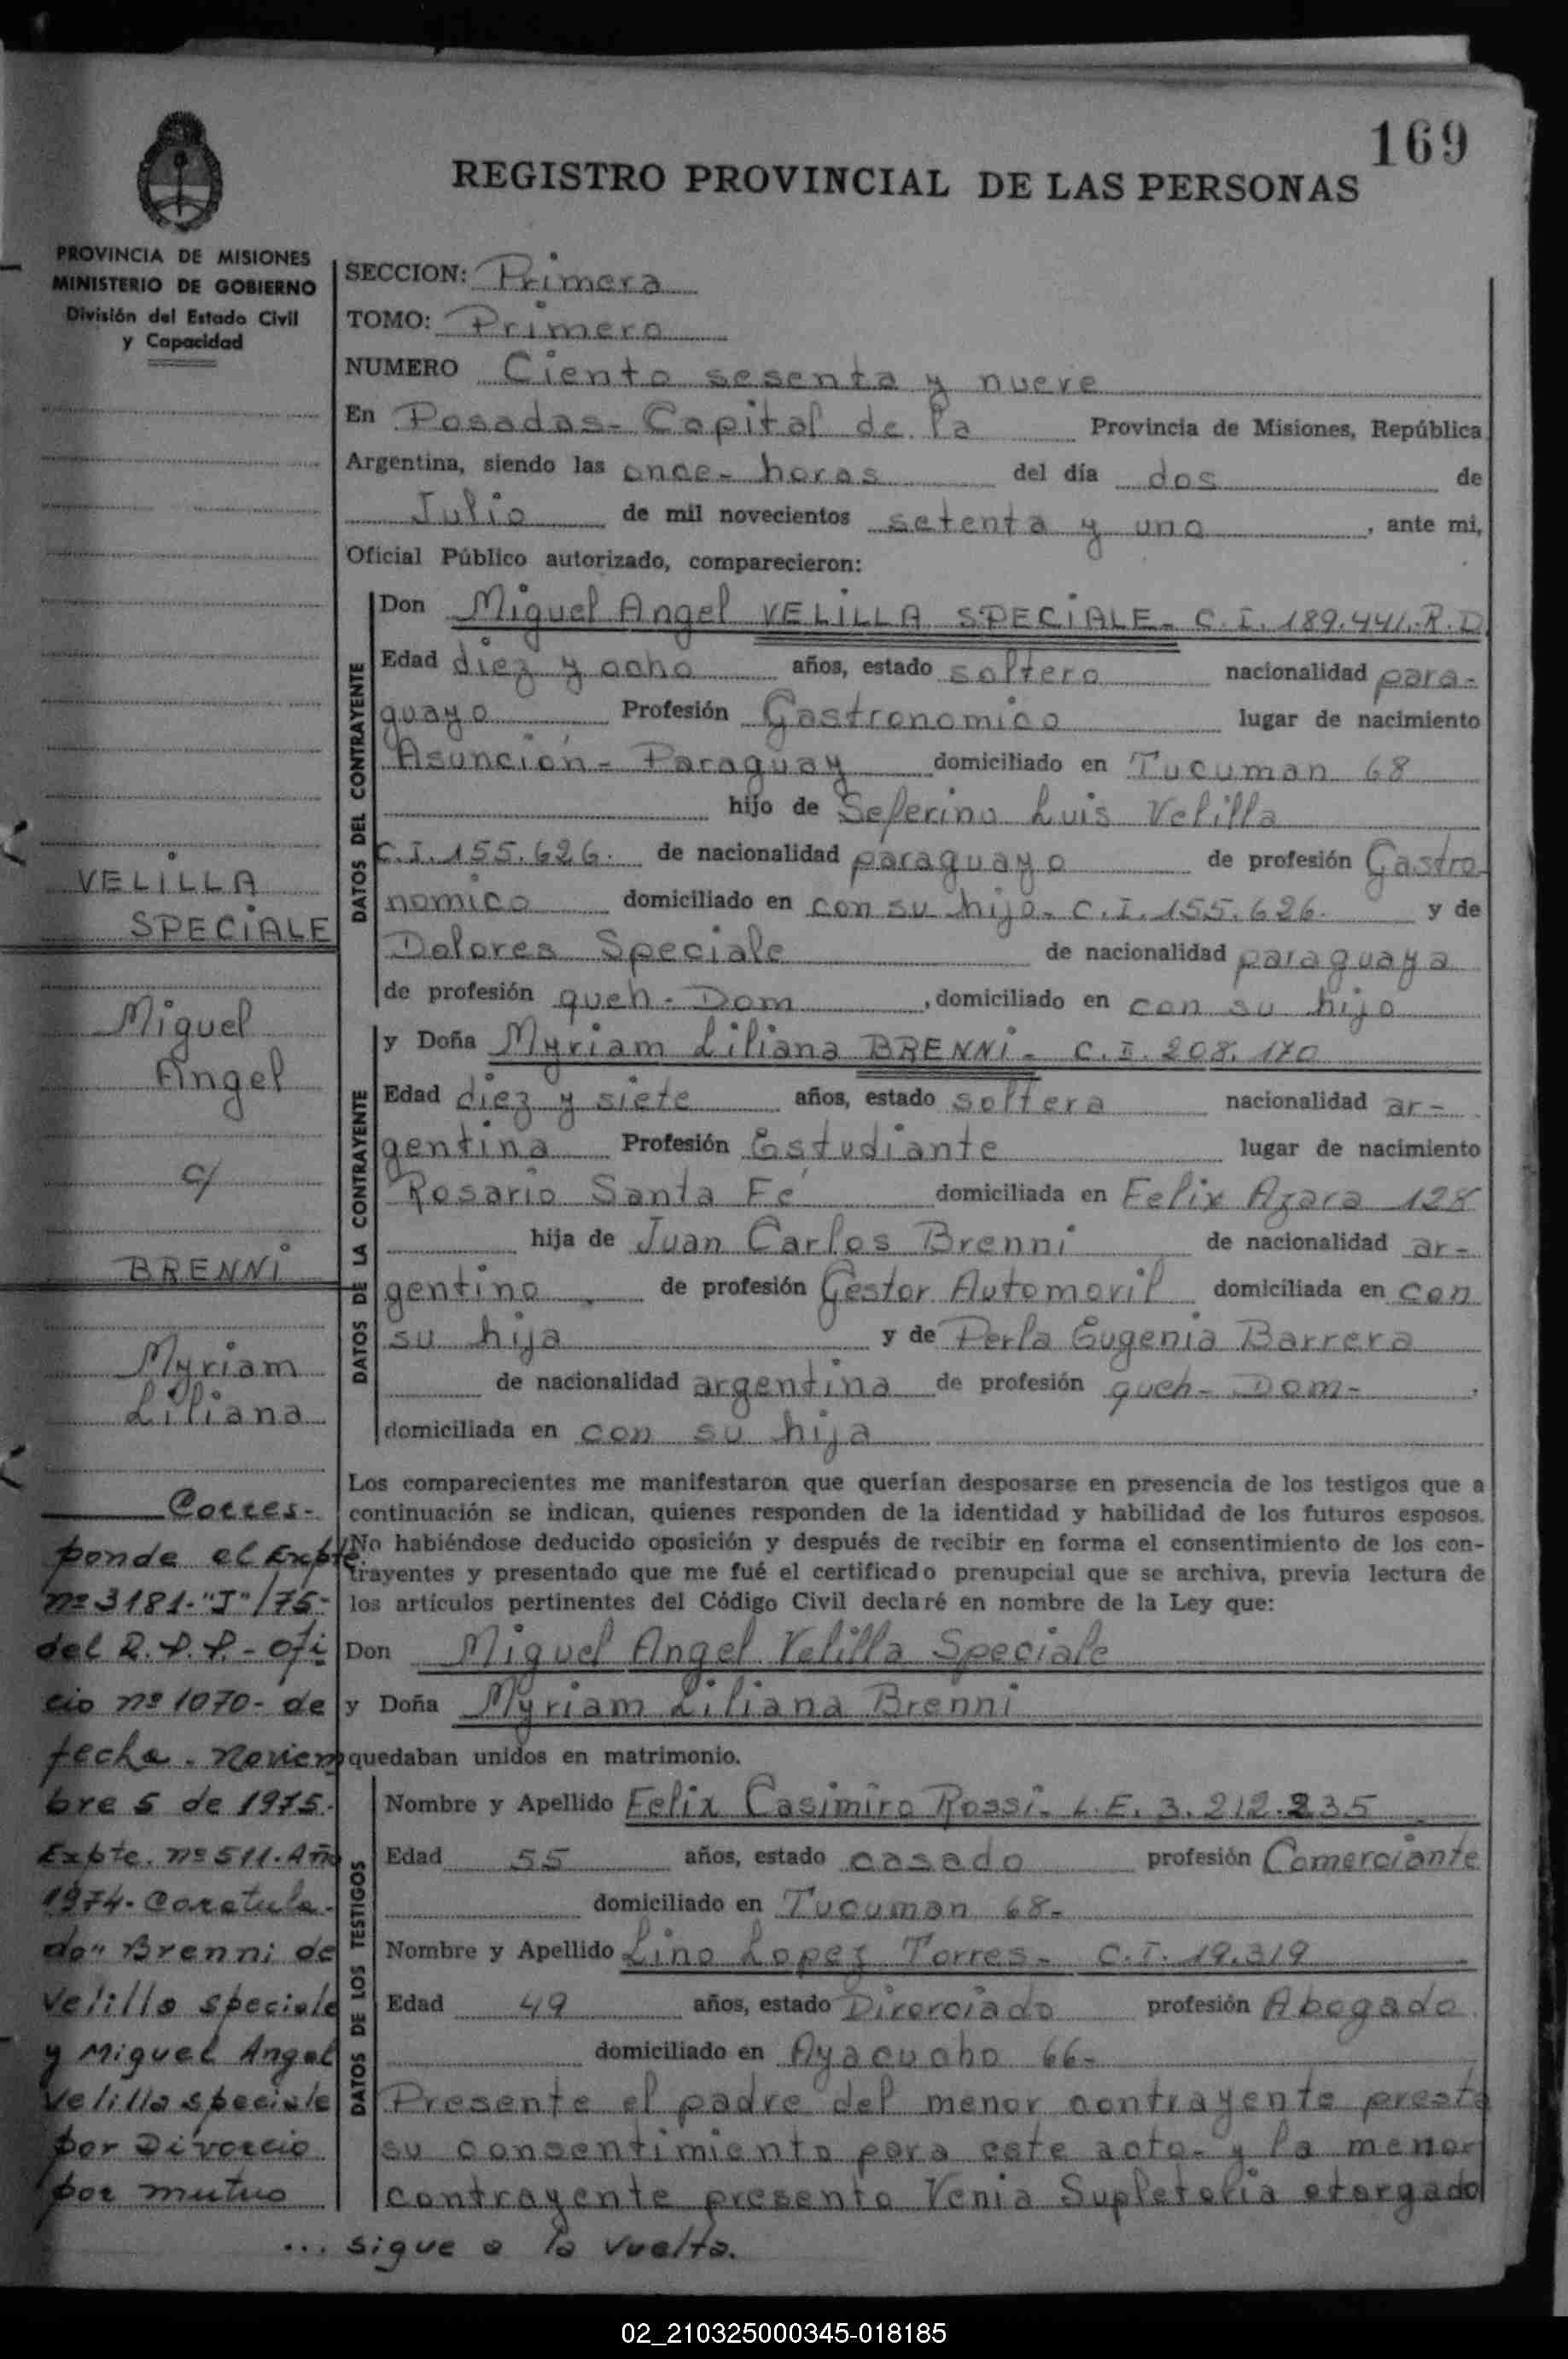 169
REGISTRO PROVINCIAL DE LAS PERSONAS
PROVINCIA DE MISIONES
MINISTERIO DE GOBIERNO
División del Estado Civil
y Capacidad
SECCION: Primera
TOMO: Primero
NUMERO Ciento sesenta y nueve
En Posadas- Capital de la Provincia de Misiones, República
Argentina, siendo las once- horas del día dos de
Julio de mil novecientos setenta y uno, ante mi,
Oficial Público autorizado, comparecieron:
DATOS DEL CONTRAYENTE
Don Miguel Angel VELILLA SPECIALE- C.I. 189.441.-R.D
Edad diez y ocho años, estado soltero nacionalidad para-
guayo Profesión Gastronomico lugar de nacimiento
Asunción- Paraguay domiciliado en Tucuman 68
hijo de Seferino Luis Velilla
C.I. 155.626. de nacionalidad paraguayo de profesión Gastro-
nomico domiciliado en con su hijo- C.I. 155.626. y de
Dolores Speciale de nacionalidad paraguaya
de profesión queh- Dom, domiciliado en con su hijo
DATOS DE LA CONTRAYENTE
y Doña Myriam Liliana BRENNI- C.I. 208.170
Edad diez y siete años, estado soltera nacionalidad ar-
gentina Profesión Estudiante lugar de nacimiento
Rosario Santa Fé domiciliada en Felix Azara 128
hija de Juan Carlos Brenni de nacionalidad ar-
gentino de profesión Gestor Automovil domiciliada en con
su hija y de Perla Eugenia Barrera
de nacionalidad argentina de profesión queh- Dom-.
domiciliada en con su hija
Los comparecientes me manifestaron que querían desposarse en presencia de los testigos que a
continuación se indican, quienes responden de la identidad y habilidad de los futuros esposos.
No habiéndose deducido oposición y después de recibir en forma el consentimiento de los con-
trayentes y presentado que me fué el certificado prenupcial que se archiva, previa lectura de
los artículos pertinentes del Código Civil declaré en nombre de la Ley que:
Don Miguel Angel Velilla Speciale
y Doña Myriam Liliana Brenni
quedaban unidos en matrimonio.
DATOS DE LOS TESTIGOS
Nombre y Apellido Felix Casimiro Rossi- L.E. 3.212.235
Edad 55 años, estado casado profesión Comerciante
domiciliado en Tucuman 68-
Nombre y Apellido Lino Lopez Torres- C.I. 19.319
Edad 49 años, estado Divorciado profesión Abogado
domiciliado en Ayacucho 66-
Presente el padre del menor contrayente presta
su consentimiento para este acto- y la menor
contrayente presenta Venia Supletoria otorgado
... sigue a la vuelta.
VELILLA
SPECIALE
Miguel
Angel
c/
BRENNI
Myriam
Liliana
Corres-
ponde el Expte.
nº 3181-"J"/75-
del R.P.P.- ofi
cio nº 1070- de
fecha. Noviem
bre 5 de 1975.
Expte. nº 511. Año
1974- Caratula-
do" Brenni de
Velilla speciale
y Miguel Angel
Velilla speciale
por Divorcio
por mutuo
02_210325000345-018185